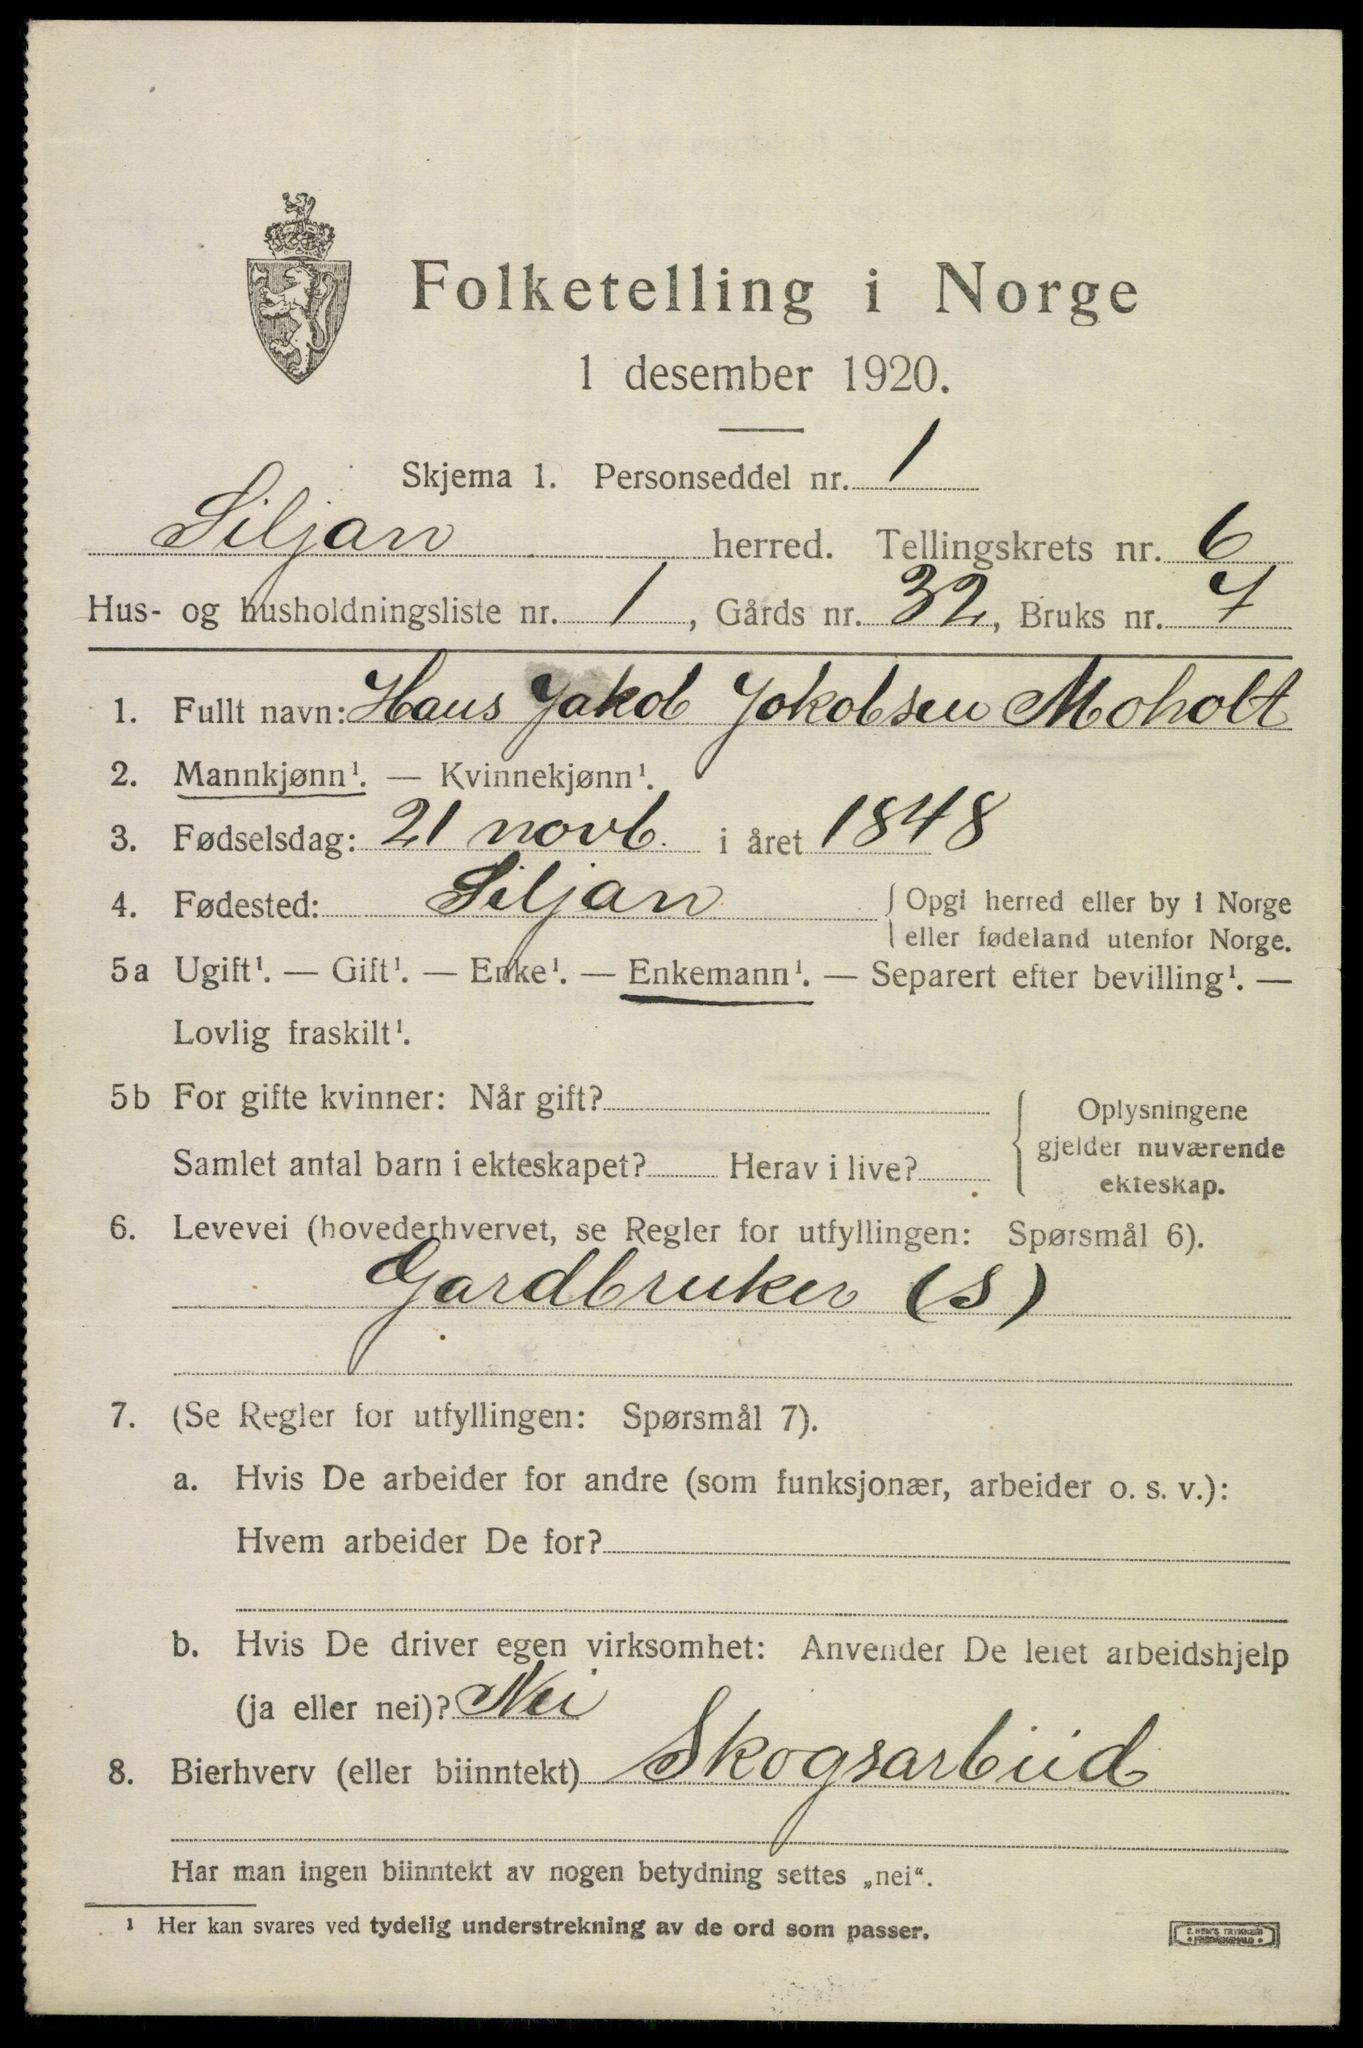 Folketelling i Norge
1 desember 1920.
Skjema 1. Personseddel nr. 1
Siljan herred. Tellingskrets nr. 6
Hus- og husholdningsliste nr. 1, Gårds nr. 32, Bruks nr. 7
1. Fullt navn: Hans Jakob Jokobsen Moholt
2. Mannkjønn¹. — Kvinnekjønn¹.
3. Fødselsdag: 21 novb. i året 1848
4. Fødested: Siljan { Opgi herred eller by i Norge
eller fødeland utenfor Norge.
5a Ugift¹. — Gift¹. — Enke¹. — Enkemann¹. — Separert efter bevilling¹. —
Lovlig fraskilt¹.
5b For gifte kvinner: Når gift?
Samlet antal barn i ekteskapet? Herav i live?
{ Oplysningene
gjelder nuværende
ekteskap.
6. Levevei (hovederhvervet, se Regler for utfyllingen: Spørsmål 6).
Gardbruker (S)
7. (Se Regler for utfyllingen: Spørsmål 7).
a. Hvis De arbeider for andre (som funksjonær, arbeider o. s. v.):
Hvem arbeider De for?
b. Hvis De driver egen virksomhet: Anvender De leiet arbeidshjelp
(ja eller nei)? Nei
8. Bierhverv (eller biinntekt) Skogsarbeid
Har man ingen biinntekt av nogen betydning settes „nei“.
¹ Her kan svares ved tydelig understrekning av de ord som passer.